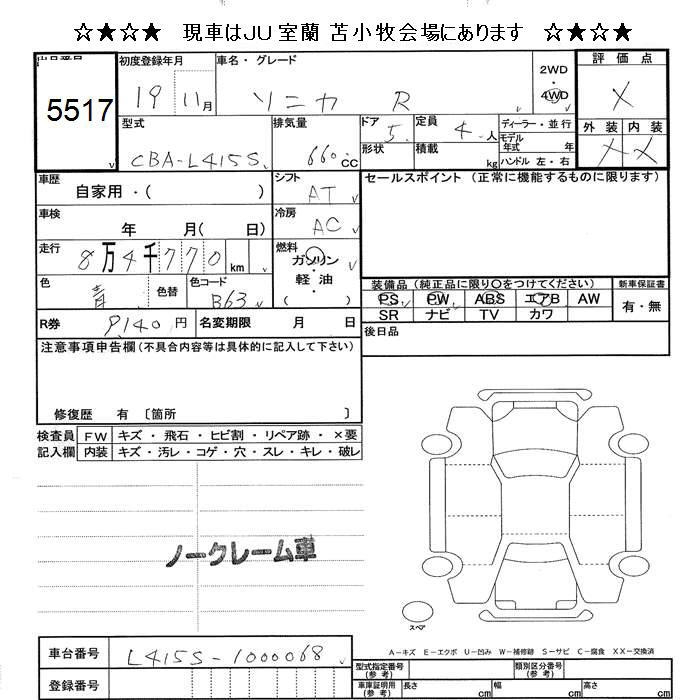 ☆★☆★ 現車はJU室蘭 苫小牧会場にあります ☆★☆★
出品番号 初度登録年月 車名・グレード 2WD 4WD 評価点
5517 19 11月 ソニカ R X
型式 排気量 ドア 定員 ディーラー・並行 外装 内装
CBA-L415S 660cc 5 4人 モデル年式 年 X X
形状 積載 kg ハンドル 左・右
車歴 シフト セールスポイント (正常に機能するものに限ります)
自家用・( ) AT
車検 冷房
年 月( 日) AC
走行 燃料
8万4千770 km ガソリン・軽油・( )
色 色替 色コード 装備品 (純正品に限り○をつけてください) 新車保証書
青 B63 PS PW ABS エアB AW 有・無
SR ナビ TV カワ
R券 9140円 名変期限 月 日 後日品
注意事項申告欄(不具合内容等は具体的に記入して下さい)
修復歴 有 〔箇所 〕
検査員 FW キズ・飛石・ヒビ割・リペア跡・×要
記入欄 内装 キズ・汚レ・コゲ・穴・スレ・キレ・破レ
ノークレーム車
スペア
A-キズ E-エクボ U-凹み W-補修跡 S-サビ C-腐食 XX-交換済
車台番号 L415S-1000068
登録番号
型式指定番号(参考) 類別区分番号(参考)
車庫証明用(参考) 長さ cm 幅 cm 高さ cm